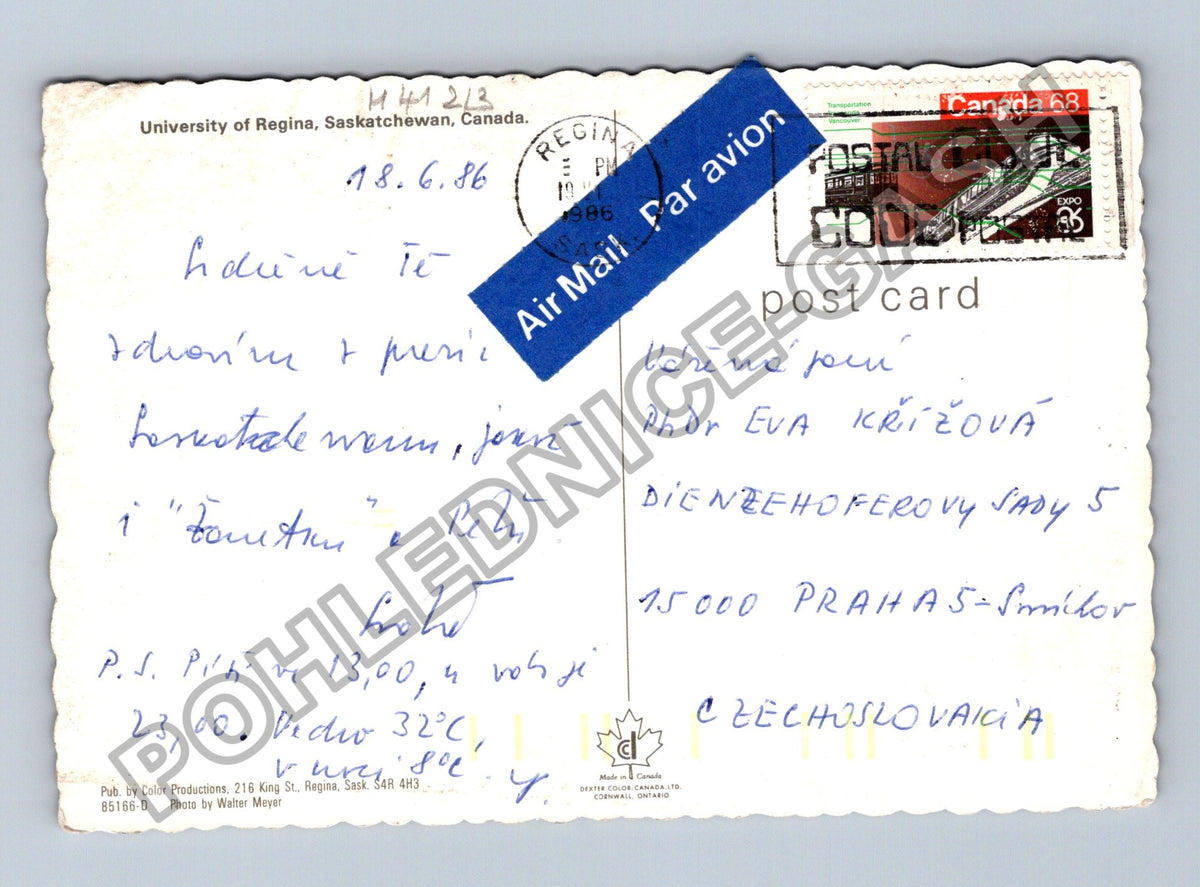 H 41 2/3
University of Regina, Saskatchewan, Canada.
18.6.86
Srdečně Tě
zdravím z prerie
jakož
i "Žanetku" a
P.S. Píši ve 13,00, u vás je
23,00. Vedro 32°C,
v noci 8°C.
Pub. by Color Productions, 216 King St., Regina, Sask. S4R 4H3
85166-D Photo by Walter Meyer
REGINA
PM
1986
SASK.
Air Mail Par avion
Transportation
Vancouver
Canada 68
EXPO 86
POSTAL CODE
CODE POSTAL
post card
Vážená paní
PhDr EVA KŘÍŽOVÁ
DIENZEHOFEROVY SADY 5
15000 PRAHA 5-Smíchov
CZECHOSLOVAKIA
cd
Made in Canada
DEXTER COLOR, CANADA, LTD.
CORNWALL, ONTARIO
POHLEDNICE-GASH